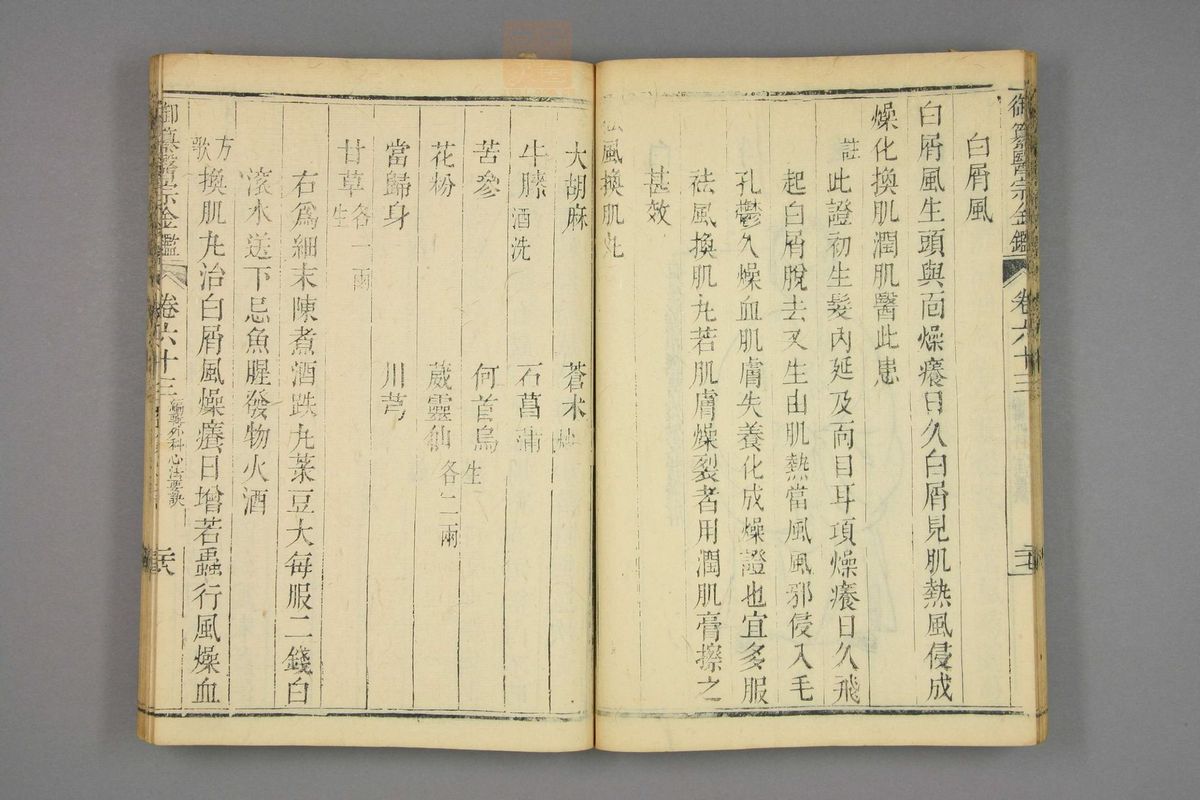 御纂醫宗金鑑 卷六十三
白屑風
白屑風生頭與面燥癢日久白屑見肌熱風侵成
燥化換肌潤肌醫此患
註此證初生髮內延及面目耳項燥癢日久飛
起白屑脫去又生由肌熱當風風邪侵入毛
孔鬱久燥血肌膚失養化成燥證也宜多服
祛風換肌丸若肌膚燥裂者用潤肌膏擦之
甚效
風換肌丸
大胡麻 蒼朮
牛膝酒洗 石菖蒲
苦參 何首烏生
花粉 威靈仙各二兩
當歸身 川芎
甘草生各一兩
右為細末陳煮酒跌丸菉豆大每服二錢白
滾水送下忌魚腥發物火酒
方歌換肌丸治白屑風燥癢日增若蟲行風燥血
御纂醫宗金鑑 卷六十三 編輯外科心法要訣